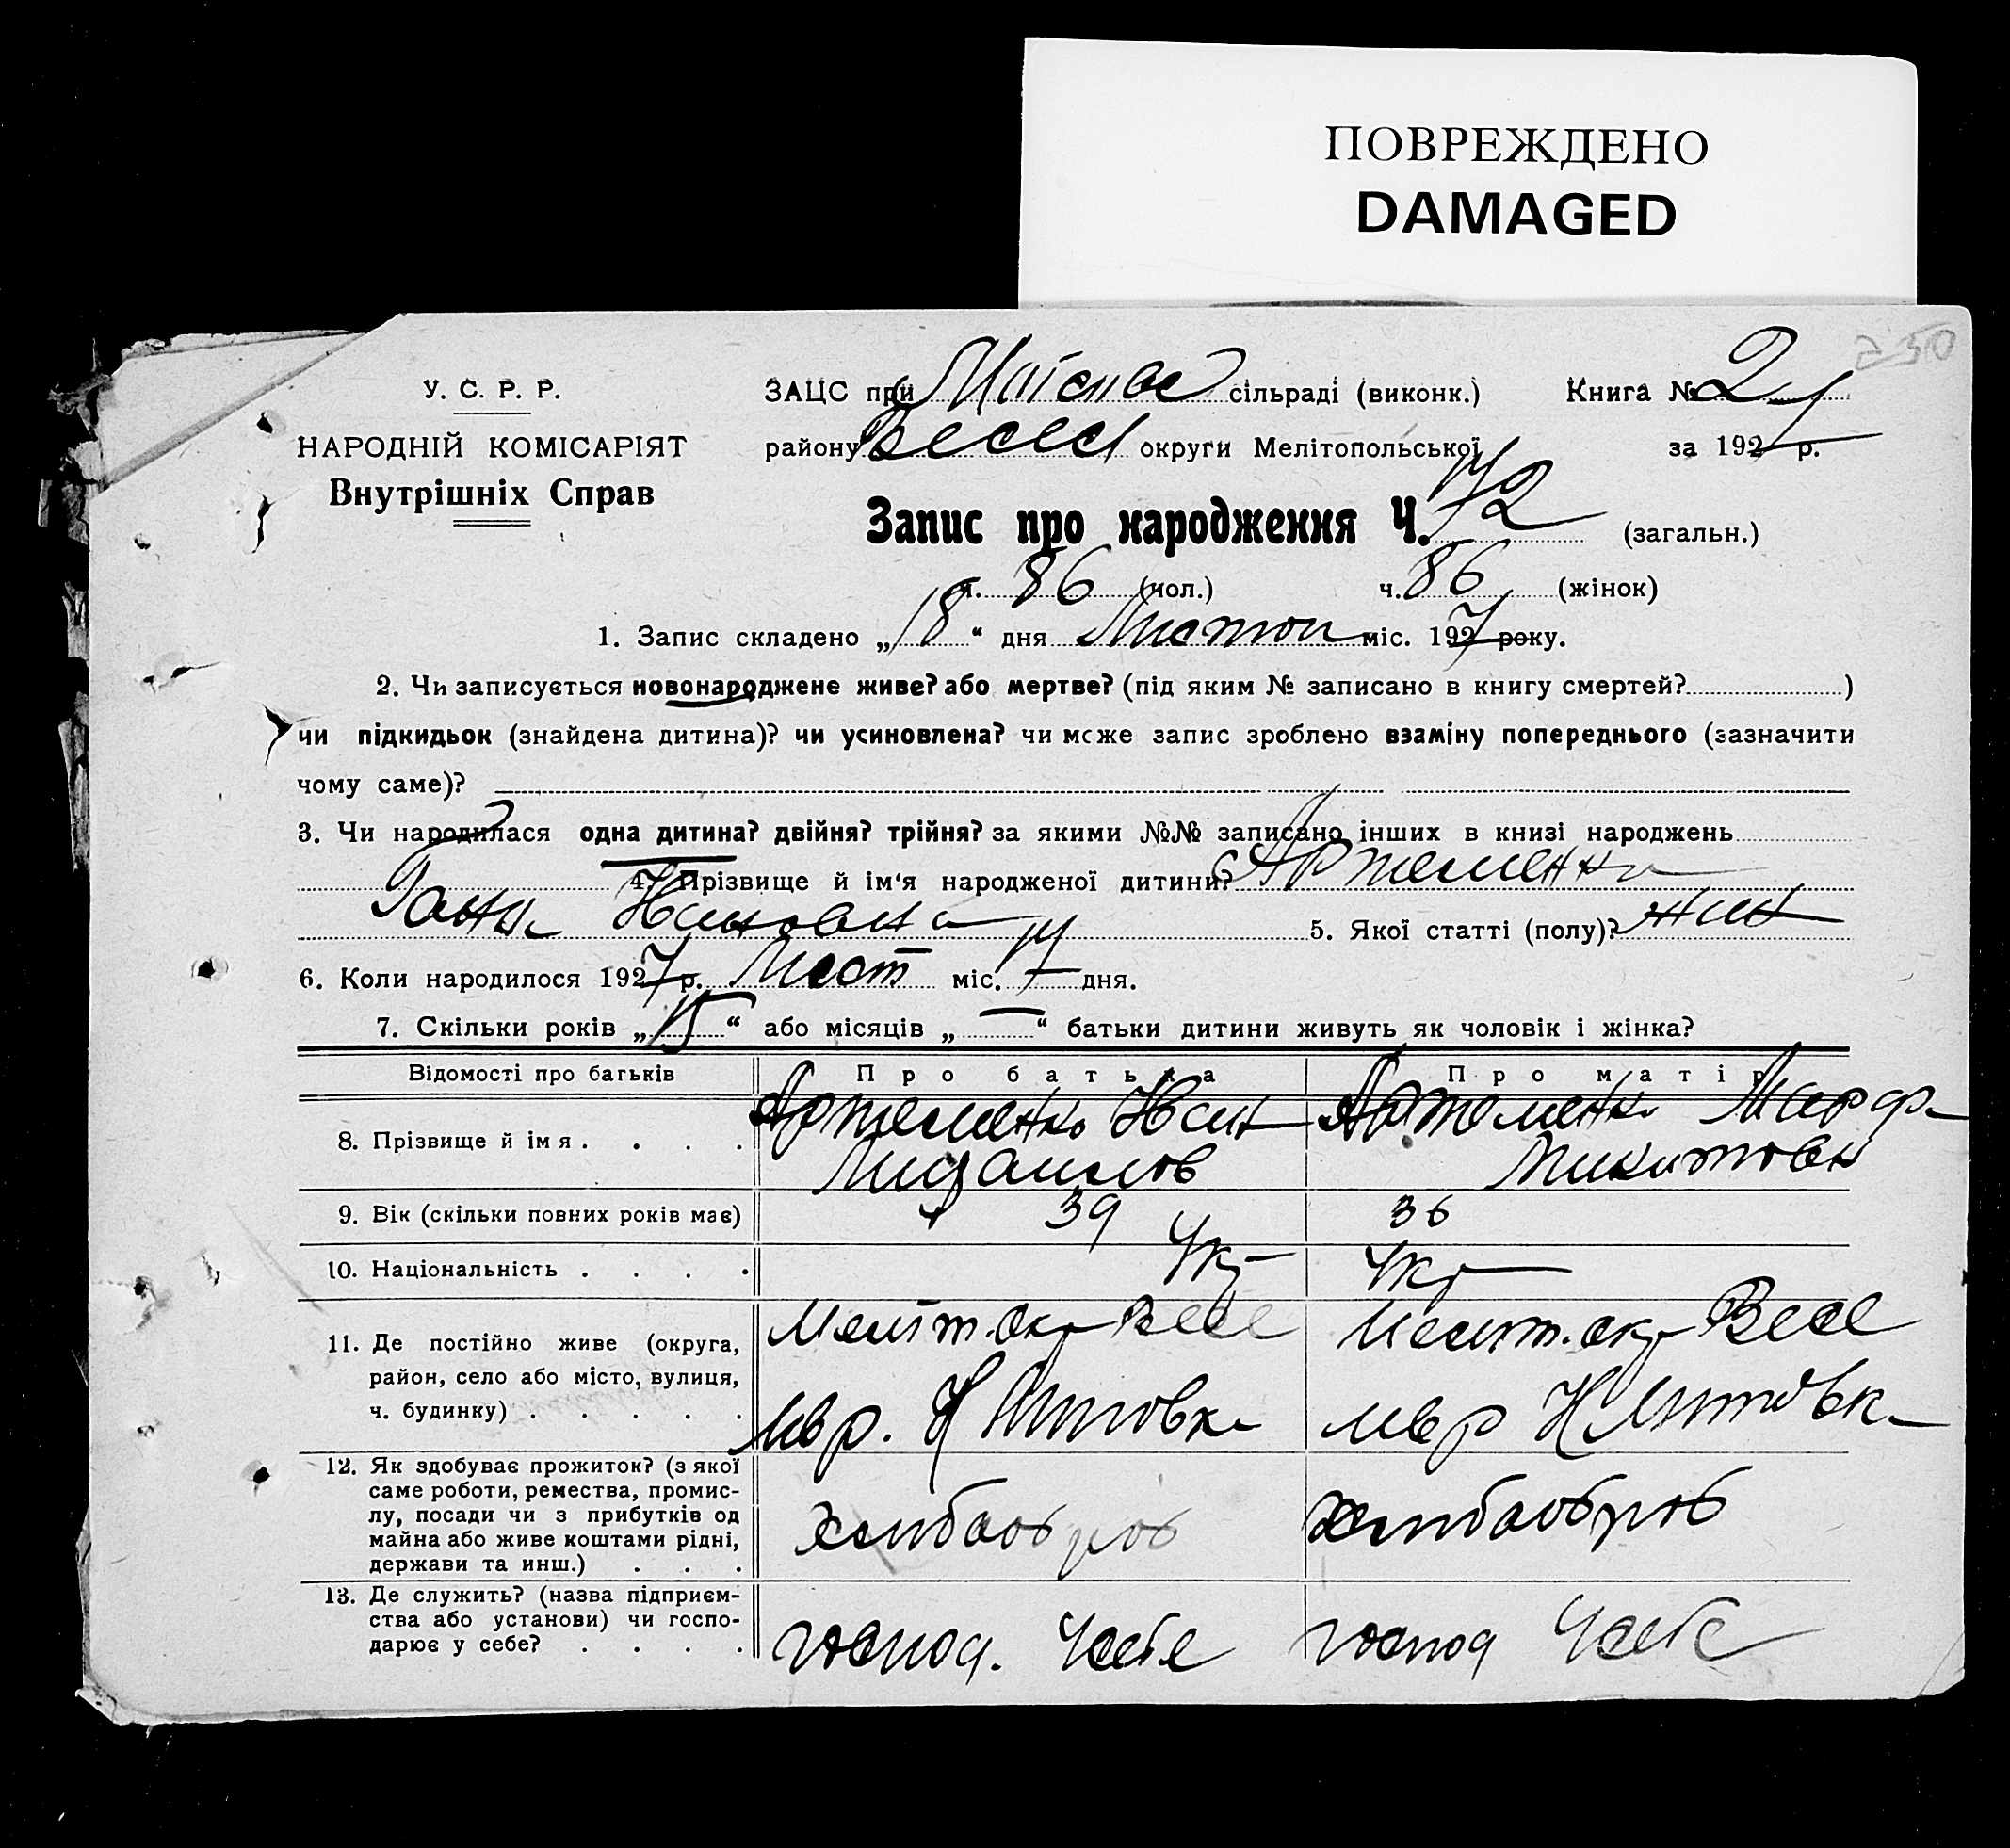 ПОВРЕЖДЕНО
DAMAGED
250
У. С. Р. Р.
НАРОДНІЙ КОМІСАРІЯТ
Внутрішніх Справ
ЗАЦС при сільраді (виконк.) Книга № 2
району Весел округи Мелітопольської за 1927 р.
Запис про народження Ч. 172 (загальн.)
ч. 86 (чол.) ч. 86 (жінок)
1. Запис складено „18“ дня Листоп міс. 1927 року.
2. Чи записується новонароджене живе? або мертве? (під яким № записано в книгу смертей? )
чи підкидьок (знайдена дитина)? чи усиновлена? чи може запис зроблено взаміну попереднього (зазначити
чому саме)?
3. Чи народилася одна дитина? двійня? трійня? за якими №№ записано інших в книзі народжень
4. Прізвище й ім‘я народженої дитини? Артеменко
Ганна Ивановна 5. Якої статті (полу)? жін
6. Коли народилося 1927 р. Лист міс. 14 дня.
7. Скільки років „15“ або місяців „—“ батьки дитини живуть як чоловік і жінка?
Відомості про батьків Про батька Про матір
8. Прізвище й імя . . . . Артеменко Иван Артеменко Марфа
Михаилов Микитовн
9. Вік (скільки повних років має) 39 36
10. Національність . . . . Укр Укр
11. Де постійно живе (округа, район, село або місто, вулиця, ч. будинку) . . . . . Меліт. окр Весе Меліт. окр Весе
12. Як здобуває прожиток? (з якої
саме роботи, ремества, промис-
лу, посади чи з прибутків од
майна або живе коштами рідні,
держави та инш.) . . . хлібооброб хлібооброб
13. Де служить? (назва підприєм-
ства або установи) чи госпо-
дарює у себе? . . . . господ. Усебе господ Усебе